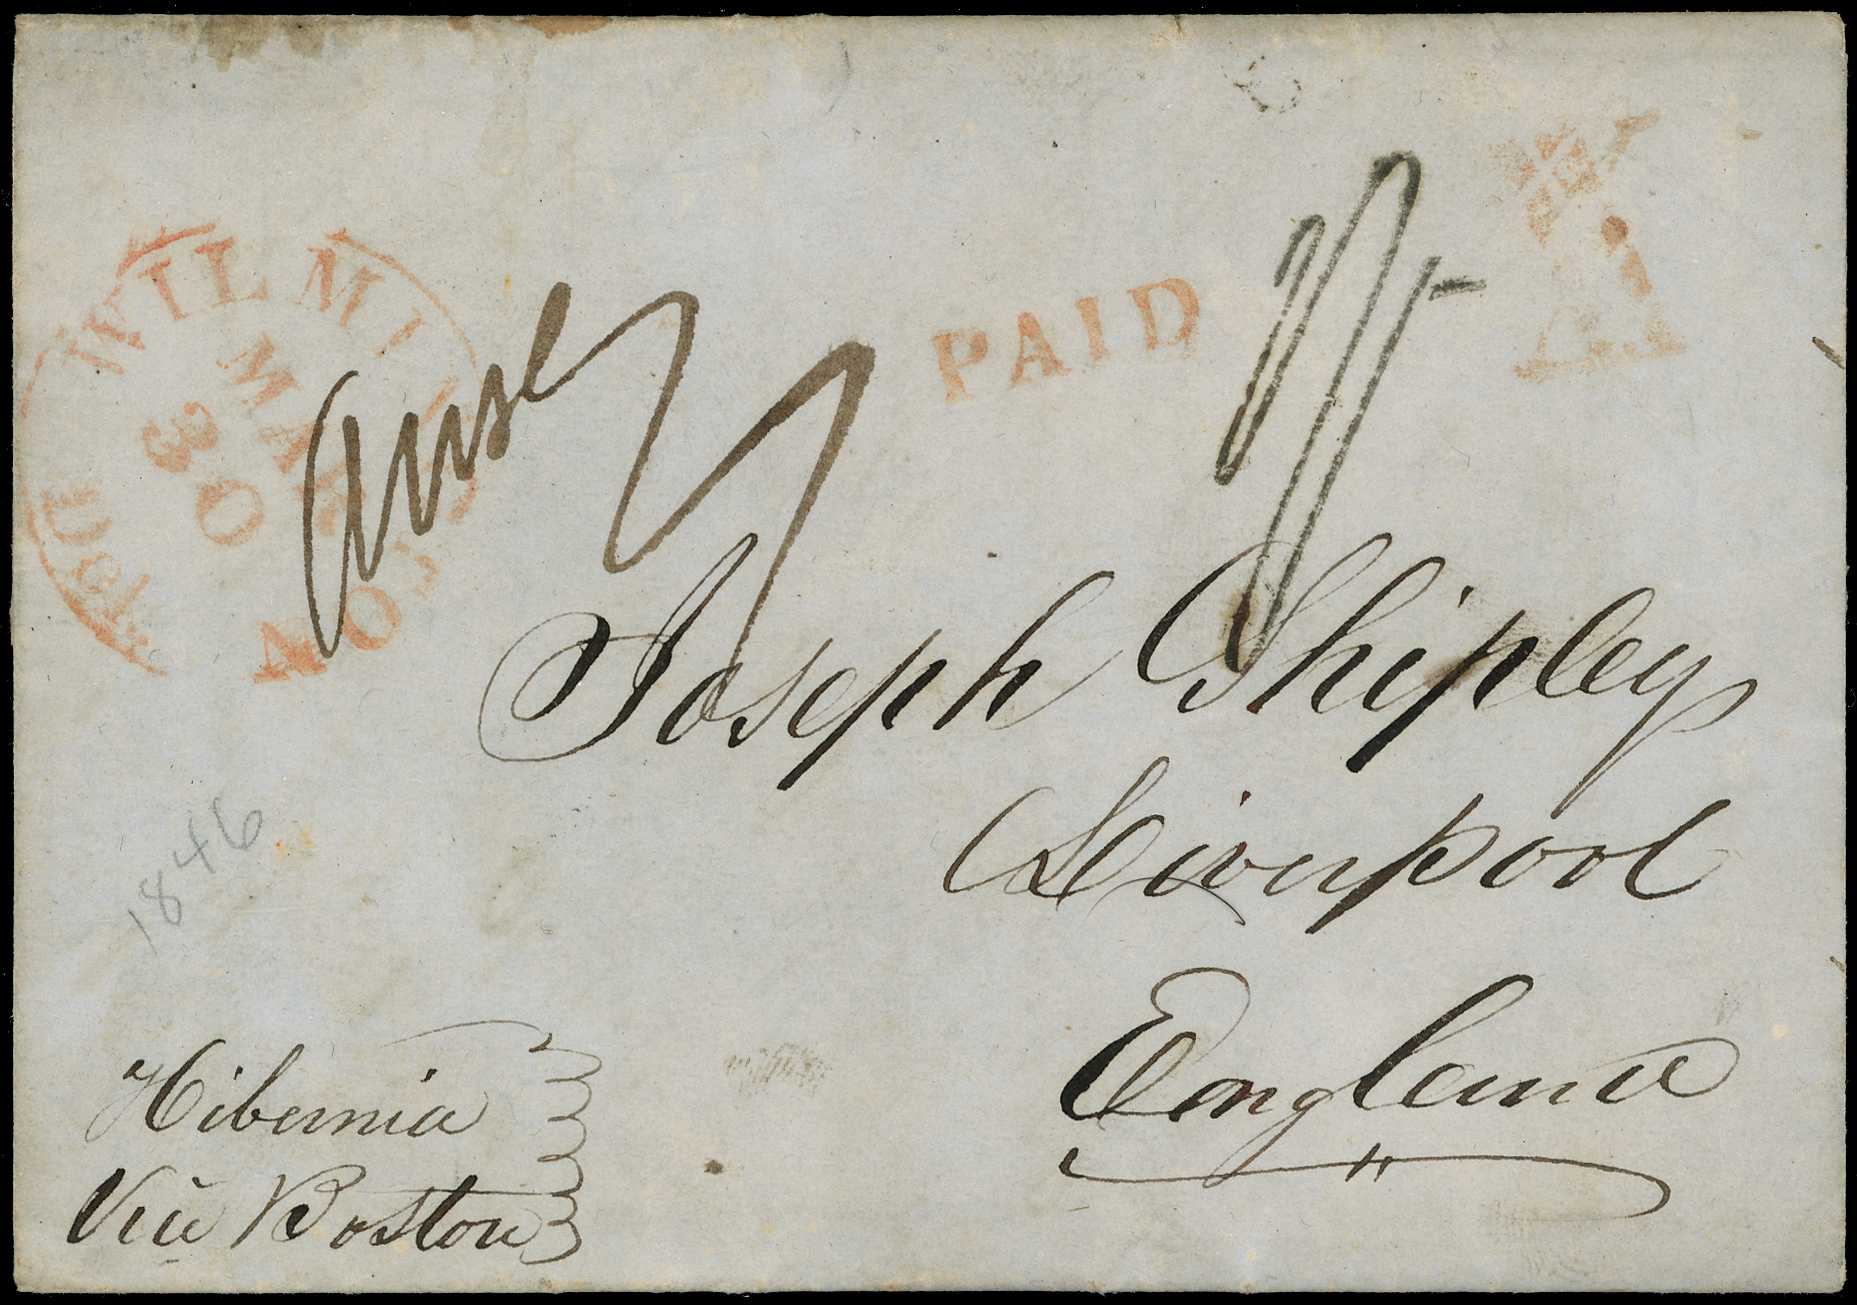 WILMINGTON
Del
MAR
30
PAID
1/-
Joseph Shipley
Liverpool
England
1846
Hibernia
Via Boston